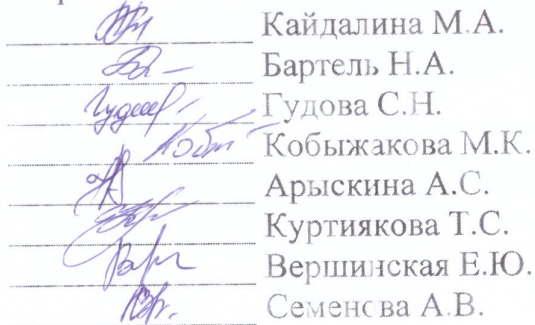 Кайдалина М.А.
Бартель Н.А.
Гудова С.Н.
Кобыжакова М.К.
Арыскина А.С.
Куртиякова Т.С.
Вершинская Е.Ю.
Семенова А.В.